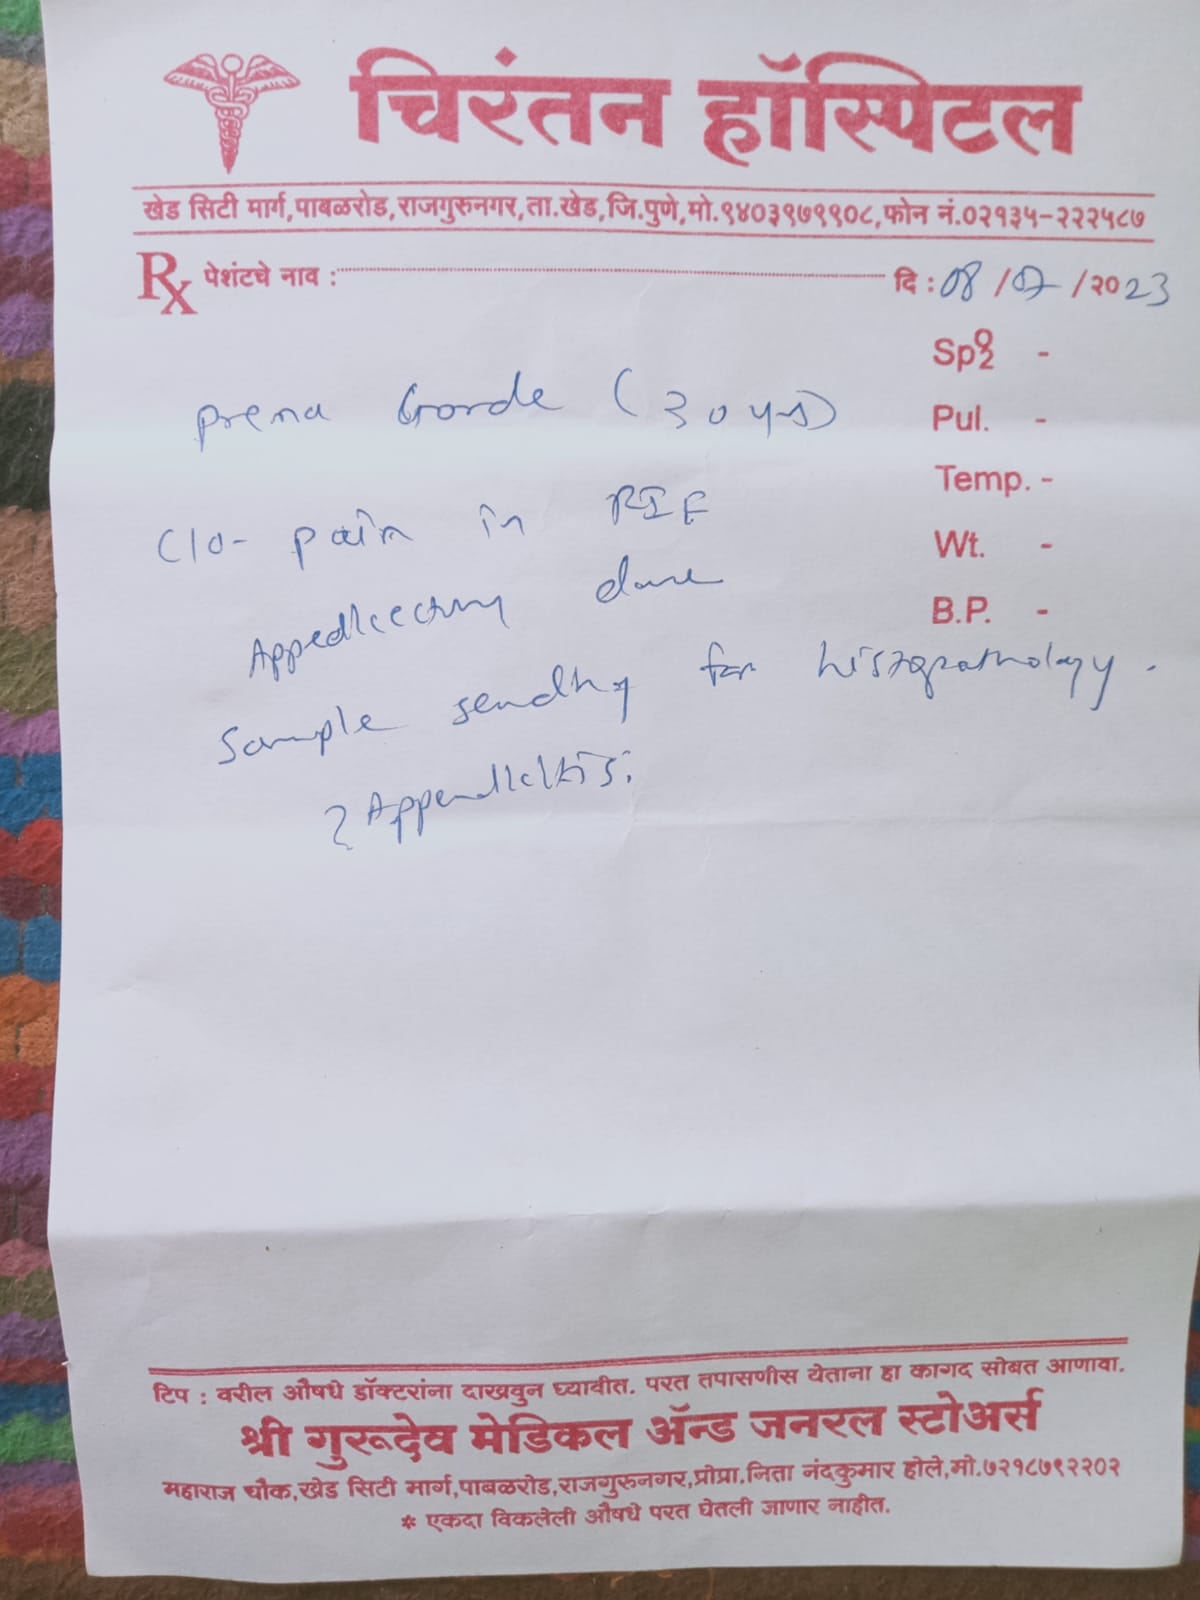 चिरंतन हॉस्पिटल
खेड सिटी मार्ग,पाबळरोड,राजगुरुनगर,ता.खेड,जि.पुणे,मो.९४०३९७९९०८,फोन नं.०२१३५-२२२५८७
Rx पेशंटचे नाव : दि : 08 /07 /२०23
Spo2 -
Prema Gorde (30 yrs)
Pul. -
Temp. -
C/o- pain in RIF
Wt. -
Appedicectomy done
B.P. -
Sample sending for histopathology.
? Appendicitis.
टिप : वरील औषधे डॉक्टरांना दाखवुन घ्यावीत. परत तपासणीस येताना हा कागद सोबत आणावा.
श्री गुरूदेव मेडिकल ॲन्ड जनरल स्टोअर्स
महाराज चौक,खेड सिटी मार्ग,पाबळरोड,राजगुरुनगर,प्रोप्रा.निता नंदकुमार होले,मो.७२१८७९२२०२
* एकदा विकलेली औषधे परत घेतली जाणार नाहीत.